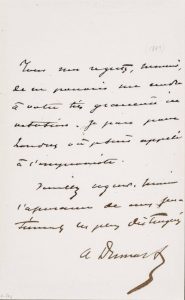 Tous mes regrets, 
de ne pouvoir me rendre
à votre très gracieuse in
vitation. Je pars pour
Londres où je suis appelé
à l'improviste.
Veuillez agréer,
l'assurance de mes sen
timents les plus distingués
A Dumas